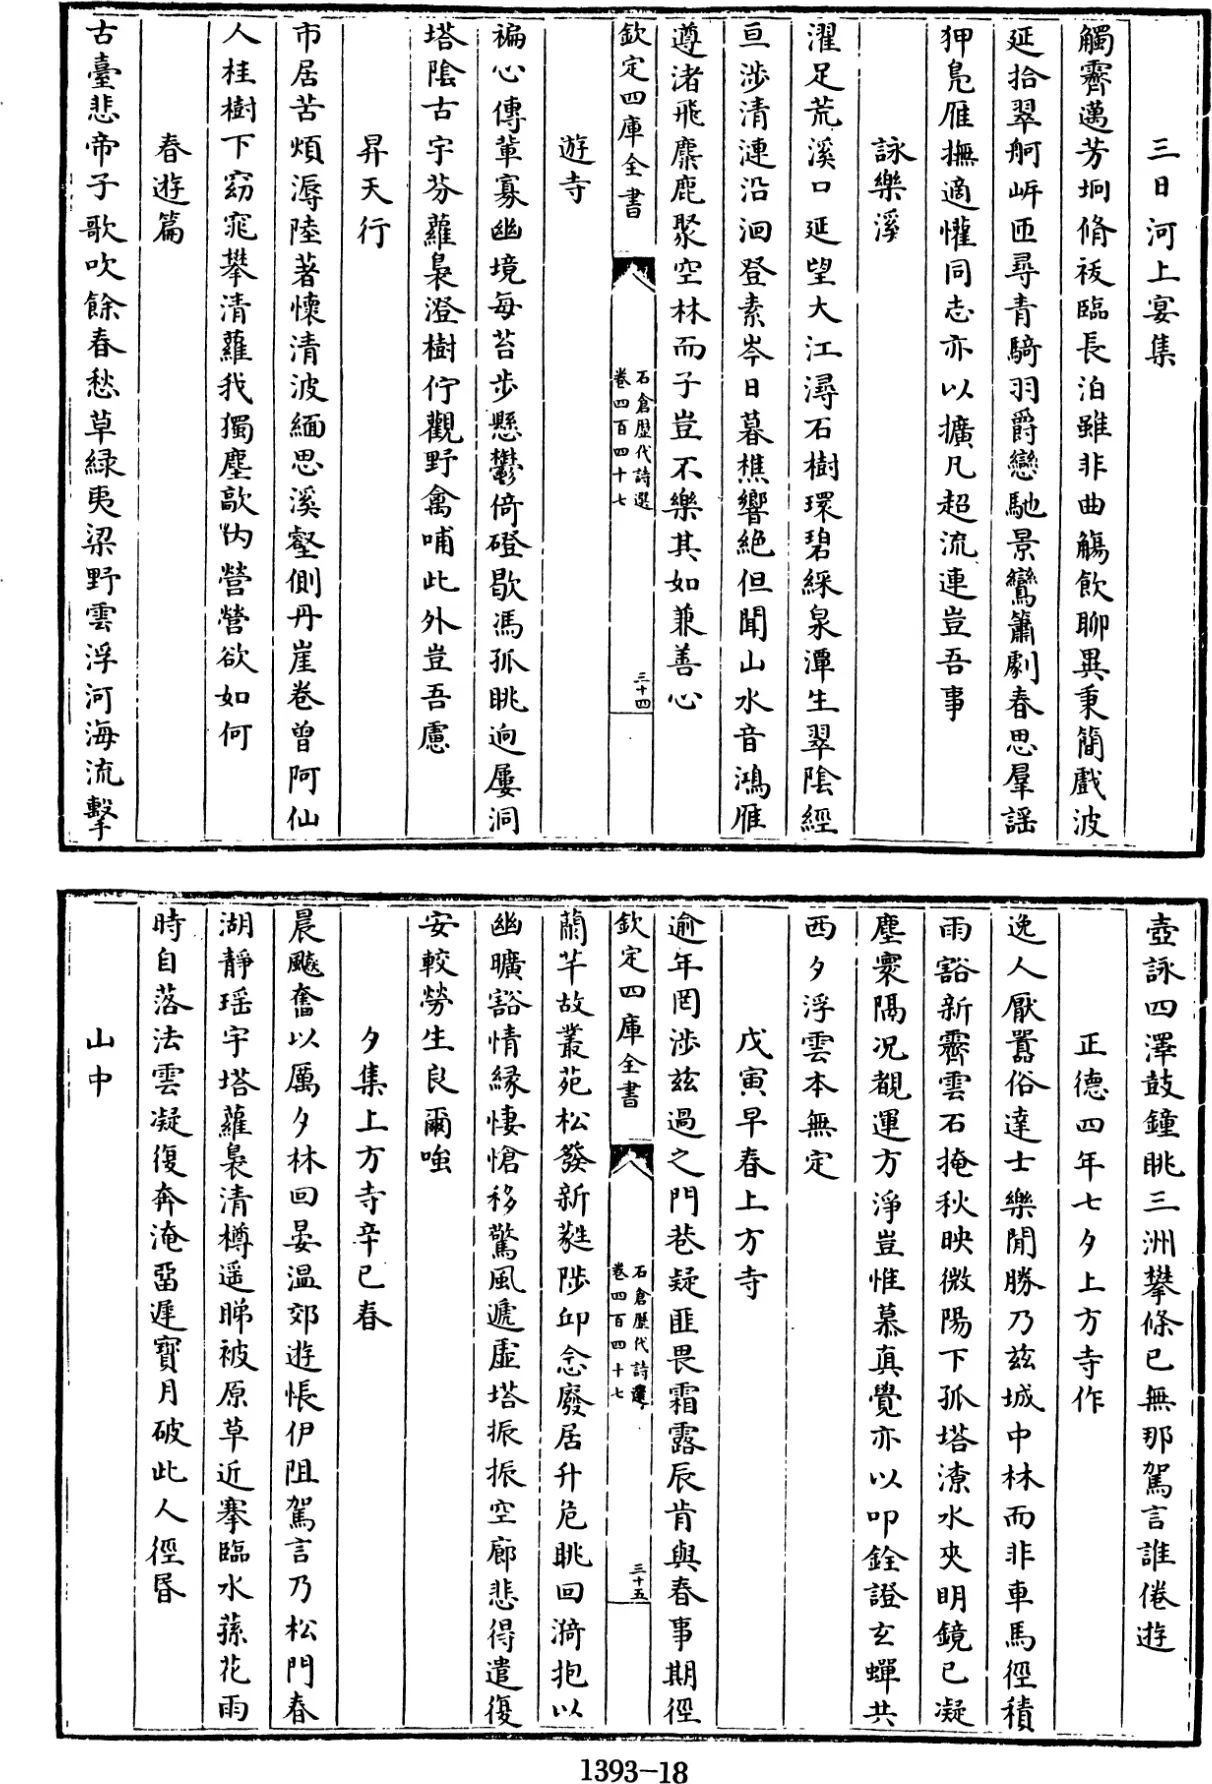 三日河上宴集
觸霽邁芳坰脩祓臨長泊雖非曲觴飲聊異秉簡戲波
延拾翠舸岍匝尋青騎羽爵戀馳景鸞簫劇春思羣謡
狎鳬雁撫適懽同志亦以擴凡超流連豈吾事
詠樂溪
濯足荒溪口延望大江潯石樹環碧綵泉潭生翠陰經
亘涉清漣沿洄登素岑日暮樵響絶但聞山水音鴻雁
遵渚飛麋鹿聚空林而子豈不樂其如兼善心
欽定四庫全書
石倉歴代詩選
卷四百四十七
三十四
遊寺
褊心傳輩寡幽境每苔步懸鬱倚磴歇馮孤眺逈屢洞
塔陰古宇芬蘿裊澄樹佇觀野禽哺此外豈吾慮
昇天行
市居苦煩溽陸著懷清波緬思溪壑側丹崖卷曾阿仙
人桂樹下窈窕攀清蘿我獨塵歊内營營欲如何
春遊篇
古臺悲帝子歌吹餘春愁草緑夷梁野雲浮河海流擊
壺詠四澤鼓鐘眺三洲攀條已無那駕言誰倦遊
正德四年七夕上方寺作
逸人厭囂俗達士樂閒勝乃兹城中林而非車馬徑積
雨豁新霽雲石掩秋映微陽下孤塔潦水夾明鏡已凝
塵寰隔况覩運方淨豈惟慕真覺亦以叩銓證玄蟬共
西夕浮雲本無定
戊寅早春上方寺
逾年罔涉兹過之門巷疑匪畏霜露辰肯與春事期徑
欽定四庫全書
石倉歴代詩選
卷四百四十七
三十五
蘭芊故叢苑松發新蕤陟卬念廢居升危眺回漪抱以
幽曠豁情緣悽愴移驚風遞虛塔振振空廊悲得遣復
安較勞生良爾嗤
夕集上方寺辛已春
晨飈奮以厲夕林回晏温郊遊悵伊阻駕言乃松門春
湖靜瑶宇塔蘿裊清樽遥睇被原草近搴臨水蓀花雨
時自落法雲凝復奔淹畱遲寳月破此人徑昏
山中
1393-18